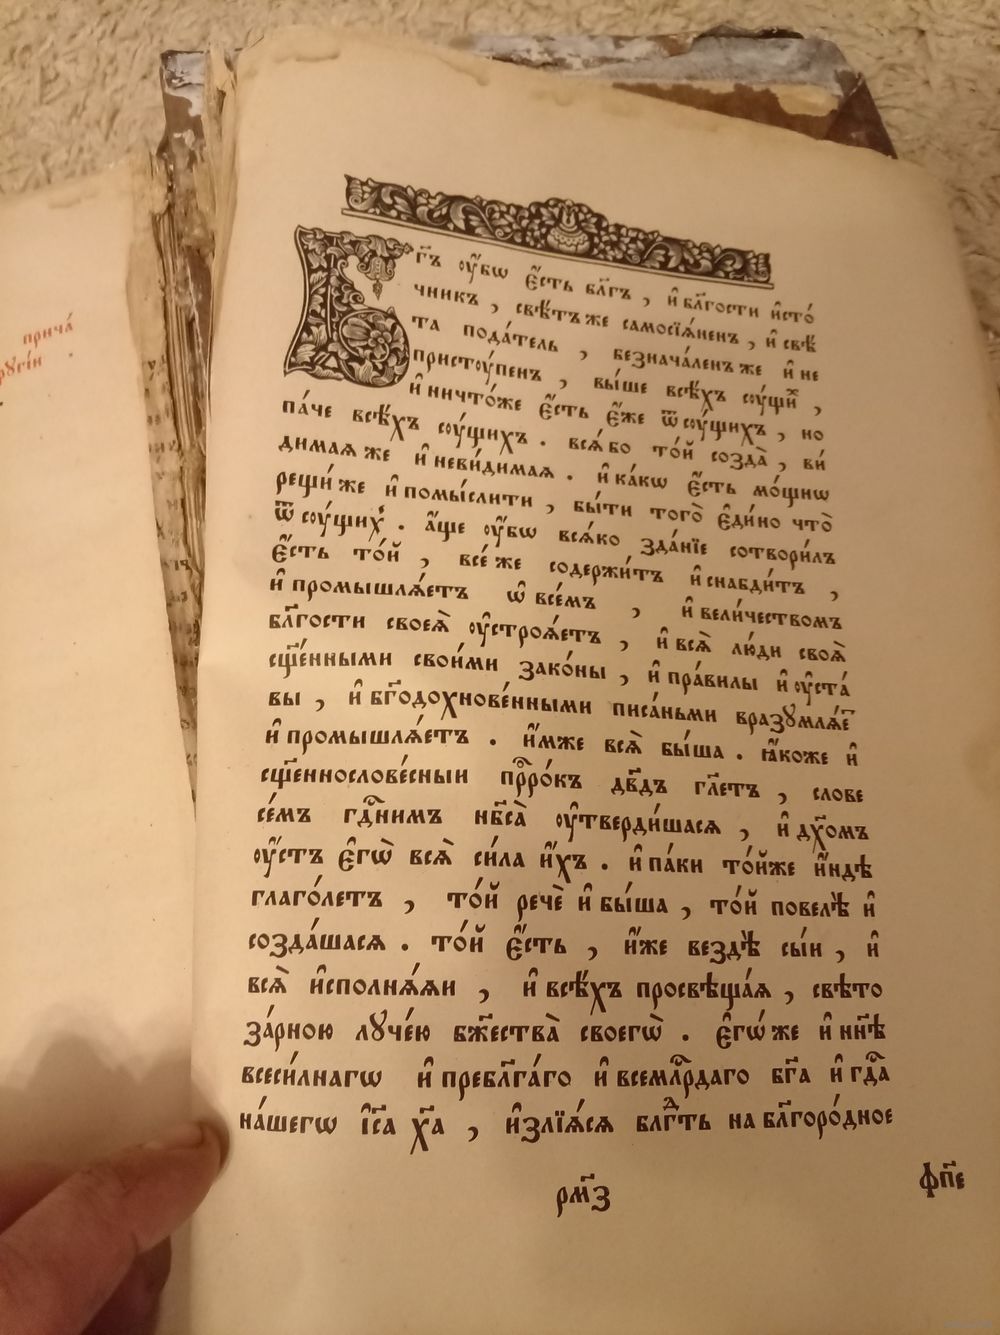 прича́
ругі́и
Бг҃ъ ᲂу҆́бѡ є҆́сть бл҃гъ , и҆ бл҃гости и҆сто́
чникъ , свѣ́тъ же самосїѧ́ненъ , и҆ свѣ́
та пода́тель , безнача́ленъ же и҆ не
пристꙋ́пенъ , вы́ше всѣ́хъ сꙋ́щи̾х ,
и҆ ничто́же є҆́сть є҆́же ѿ сꙋ́щихъ , но
па́че всѣ́хъ сꙋ́щихъ . всѧ́ бо то́й созда̀ , ви́
димаѧ же и҆ неви́димаѧ . и҆ ка́кѡ є҆́сть мо́щно
рещи́ же и҆ помы́слити , бы́ти того̀ є҆ди́но что̀
ѿ сꙋ́щих̾ . а҆́ще ᲂу҆́бѡ всѧ́ко зда́нїе сотвори́лъ
є҆́сть то́й , всѐ же содержи́тъ и҆ снабди́тъ ,
и҆ промышлѧ́етъ ѡ҆ все́мъ , и҆ вели́чествомъ
бл҃гости своеѧ̀ ᲂу҆строѧ́етъ , и҆ всѧ̀ лю́ди своѧ̀
сщ҃е́нными свои́ми зако́ны , и҆ пра́вилы и҆ ᲂу҆ста́
вы , и҆ бг҃одохнове́нными писа́ньми вразꙋмлѧ́ет
и҆ промышлѧ́етъ . и҆́мже всѧ̀ бы́ша . ꙗ҆́коже и҆
сщ҃еннослове́сныи прⷪ҇ро́къ дв҃дъ гл҃етъ , слове
се́мъ гдⷭ҇нимъ нб҃са̀ ᲂу҆тверди́шасѧ , и҆ дх҃омъ
ᲂу҆́стъ є҆гѡ̀ всѧ̀ си́ла и҆́хъ . и҆ па́ки то́йже и҆́ндѣ
глаго́летъ , то́й речѐ и҆ бы́ша , то́й повелѣ̀ и҆
созда́шасѧ . то́й є҆́сть , и҆́же вездѣ̀ сы́и , и҆
всѧ̀ и҆сполнѧ́ѧи , и҆ всѣ́хъ просвѣща́ѧ , свѣто
за́рною лꙋче́ю бж҃ества̀ своегѡ̀ . є҆гѡ́ же и҆ нн҃ѣ
всеси́лнагѡ и҆ пребл҃га́го и҆ всемлⷭ҇рдаго бг҃а и҆ гдⷭ҇а
на́шегѡ і҆с҃а хр҃а , и҆злїѧ́сѧ блгⷣть на бл҃горо́дное
рм҃з
фп҃е